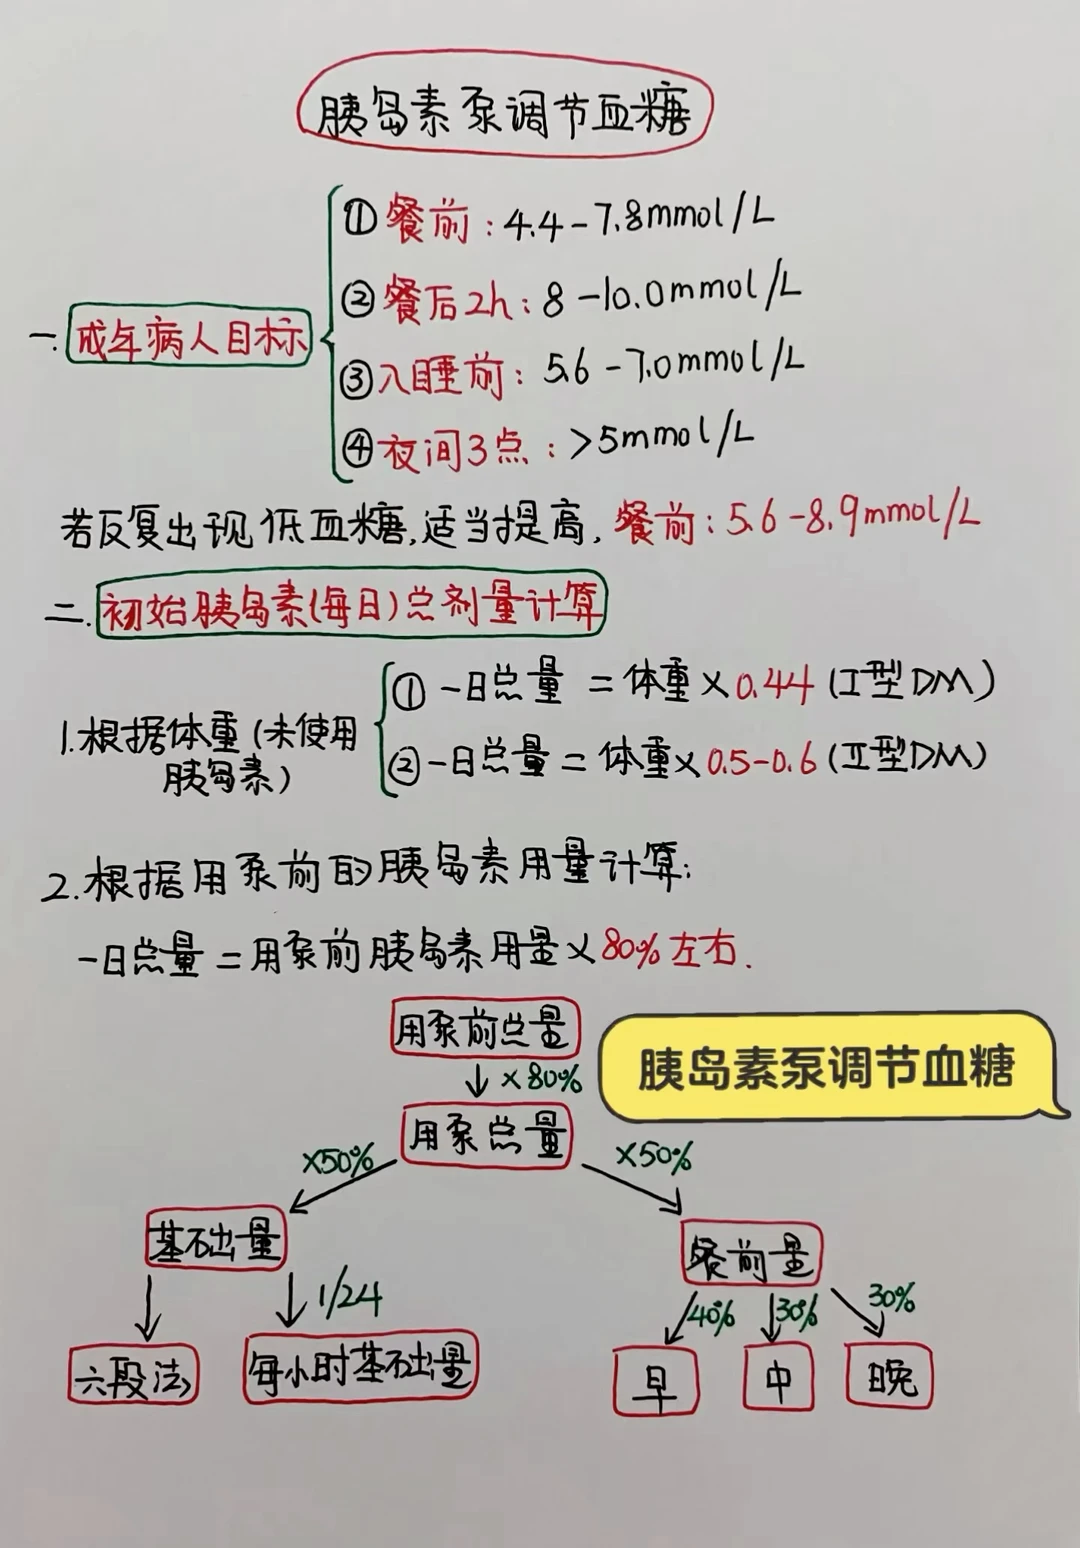 胰岛素泵调节血糖
一.成年病人目标
①餐前:4.4-7.8mmol/L
②餐后2h:8-10.0mmol/L
③入睡前:5.6-7.0mmol/L
④夜间3点:>5mmol/L
若反复出现低血糖,适当提高,餐前:5.6-8.9mmol/L
二.初始胰岛素(每日)总剂量计算
1.根据体重(未使用胰岛素)
①一日总量=体重×0.44(I型DM)
②一日总量=体重×0.5-0.6(II型DM)
2.根据用泵前的胰岛素用量计算:
一日总量=用泵前胰岛素用量×80%左右.
用泵前总量
×80%
胰岛素泵调节血糖
用泵总量
×50% ×50%
基础量 餐前量
1/24 40% 30% 30%
六段法 每小时基础量 早 中 晚